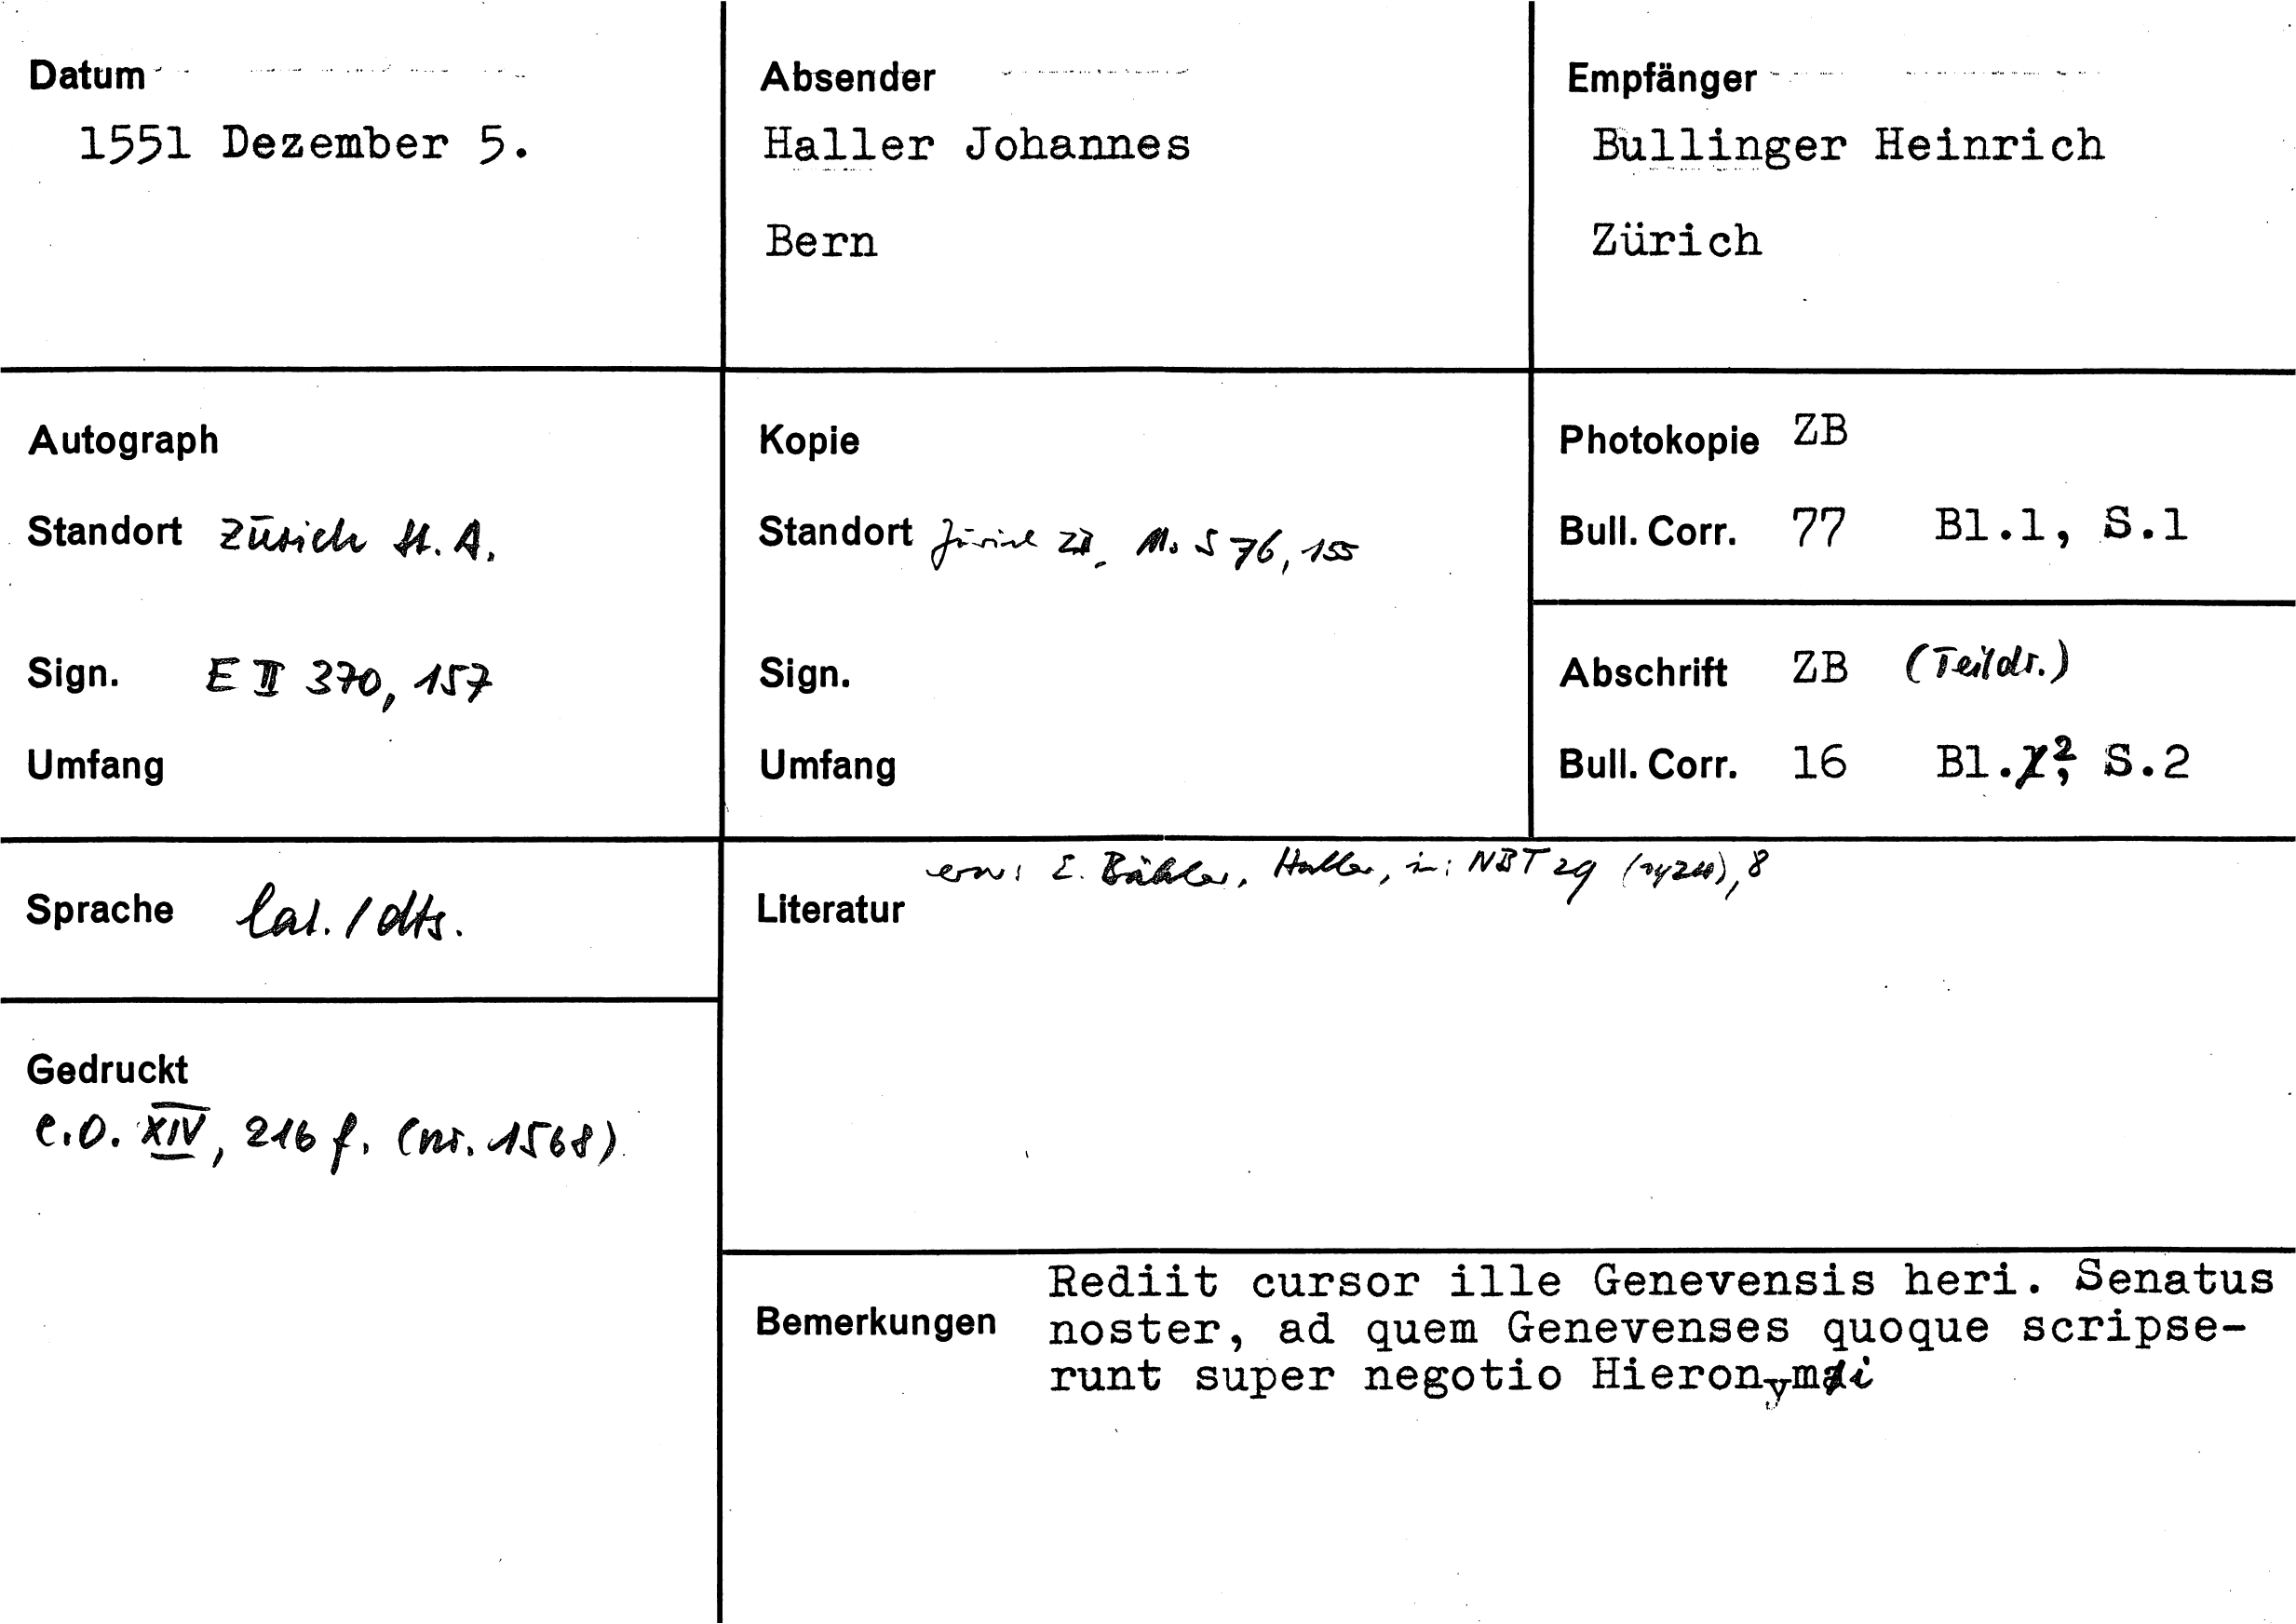 Datum
1551 Dezember 5.
Absender
Haller Johannes
Bern
Empfänger
Bullinger Heinrich
Zürich
Autograph
Standort Zürich St. A.
Sign. E II 370, 157
Umfang
Kopie
Standort Zürich ZB, Ms S 76, 155
Sign.
Umfang
Photokopie ZB
Bull. Corr. 77 Bl.1, S.1
Abschrift ZB (Teildr.)
Bull. Corr. 16 Bl.2, S.2
Sprache lat. / dts.
Gedruckt
C.O. XIV, 216 f. (nr. 1568)
erw: E. Bähler, Haller, in: NBT 29 8
Literatur
Bemerkungen
Rediit cursor ille Genevensis heri. Senatus
noster, ad quem Genevenses quoque scripse-
runt super negotio Hieronymi